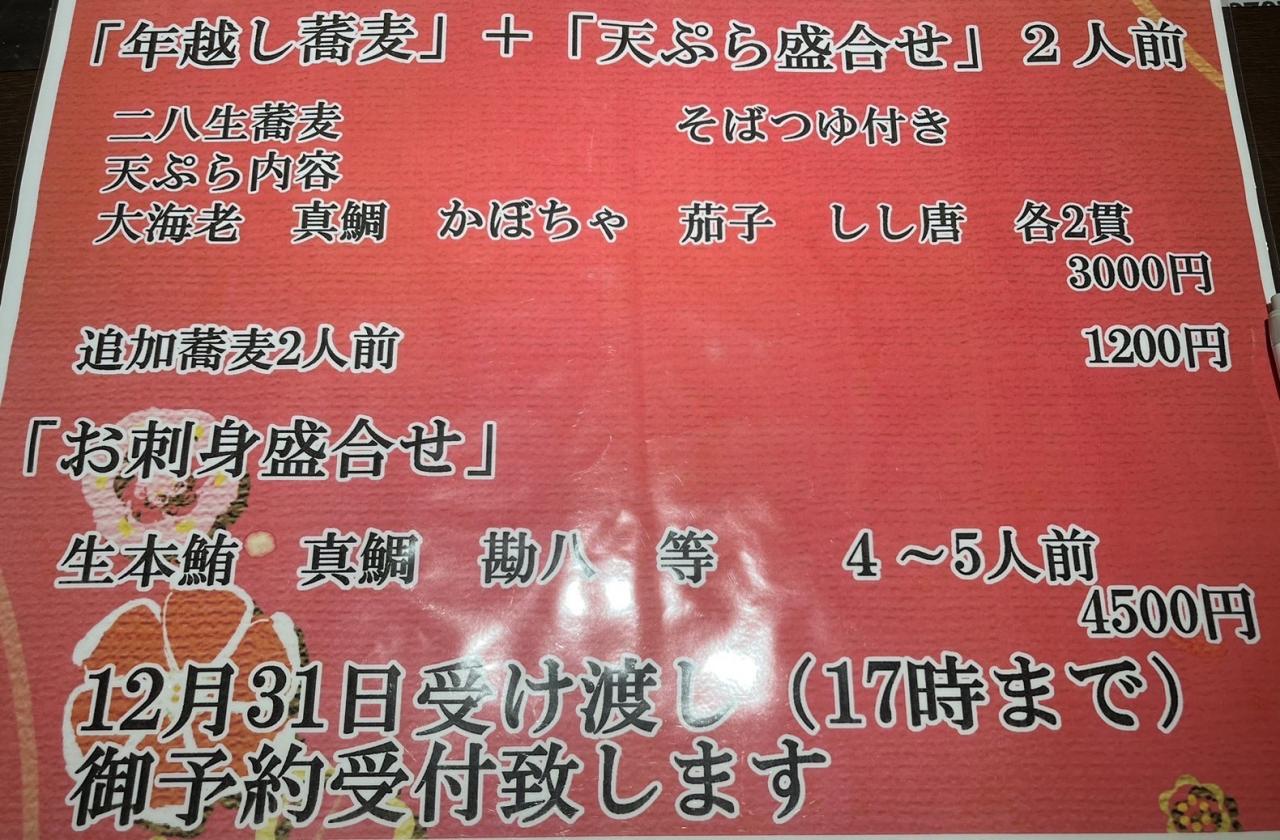 「年越し蕎麦」＋「天ぷら盛合せ」２人前
二八生蕎麦　そばつゆ付き
天ぷら内容
大海老　真鯛　かぼちゃ　茄子　しし唐　各2貫
3000円
追加蕎麦2人前　1200円
「お刺身盛合せ」
生本鮪　真鯛　勘八　等　４～5人前
4500円
12月31日受け渡し（17時まで）
御予約受付致します